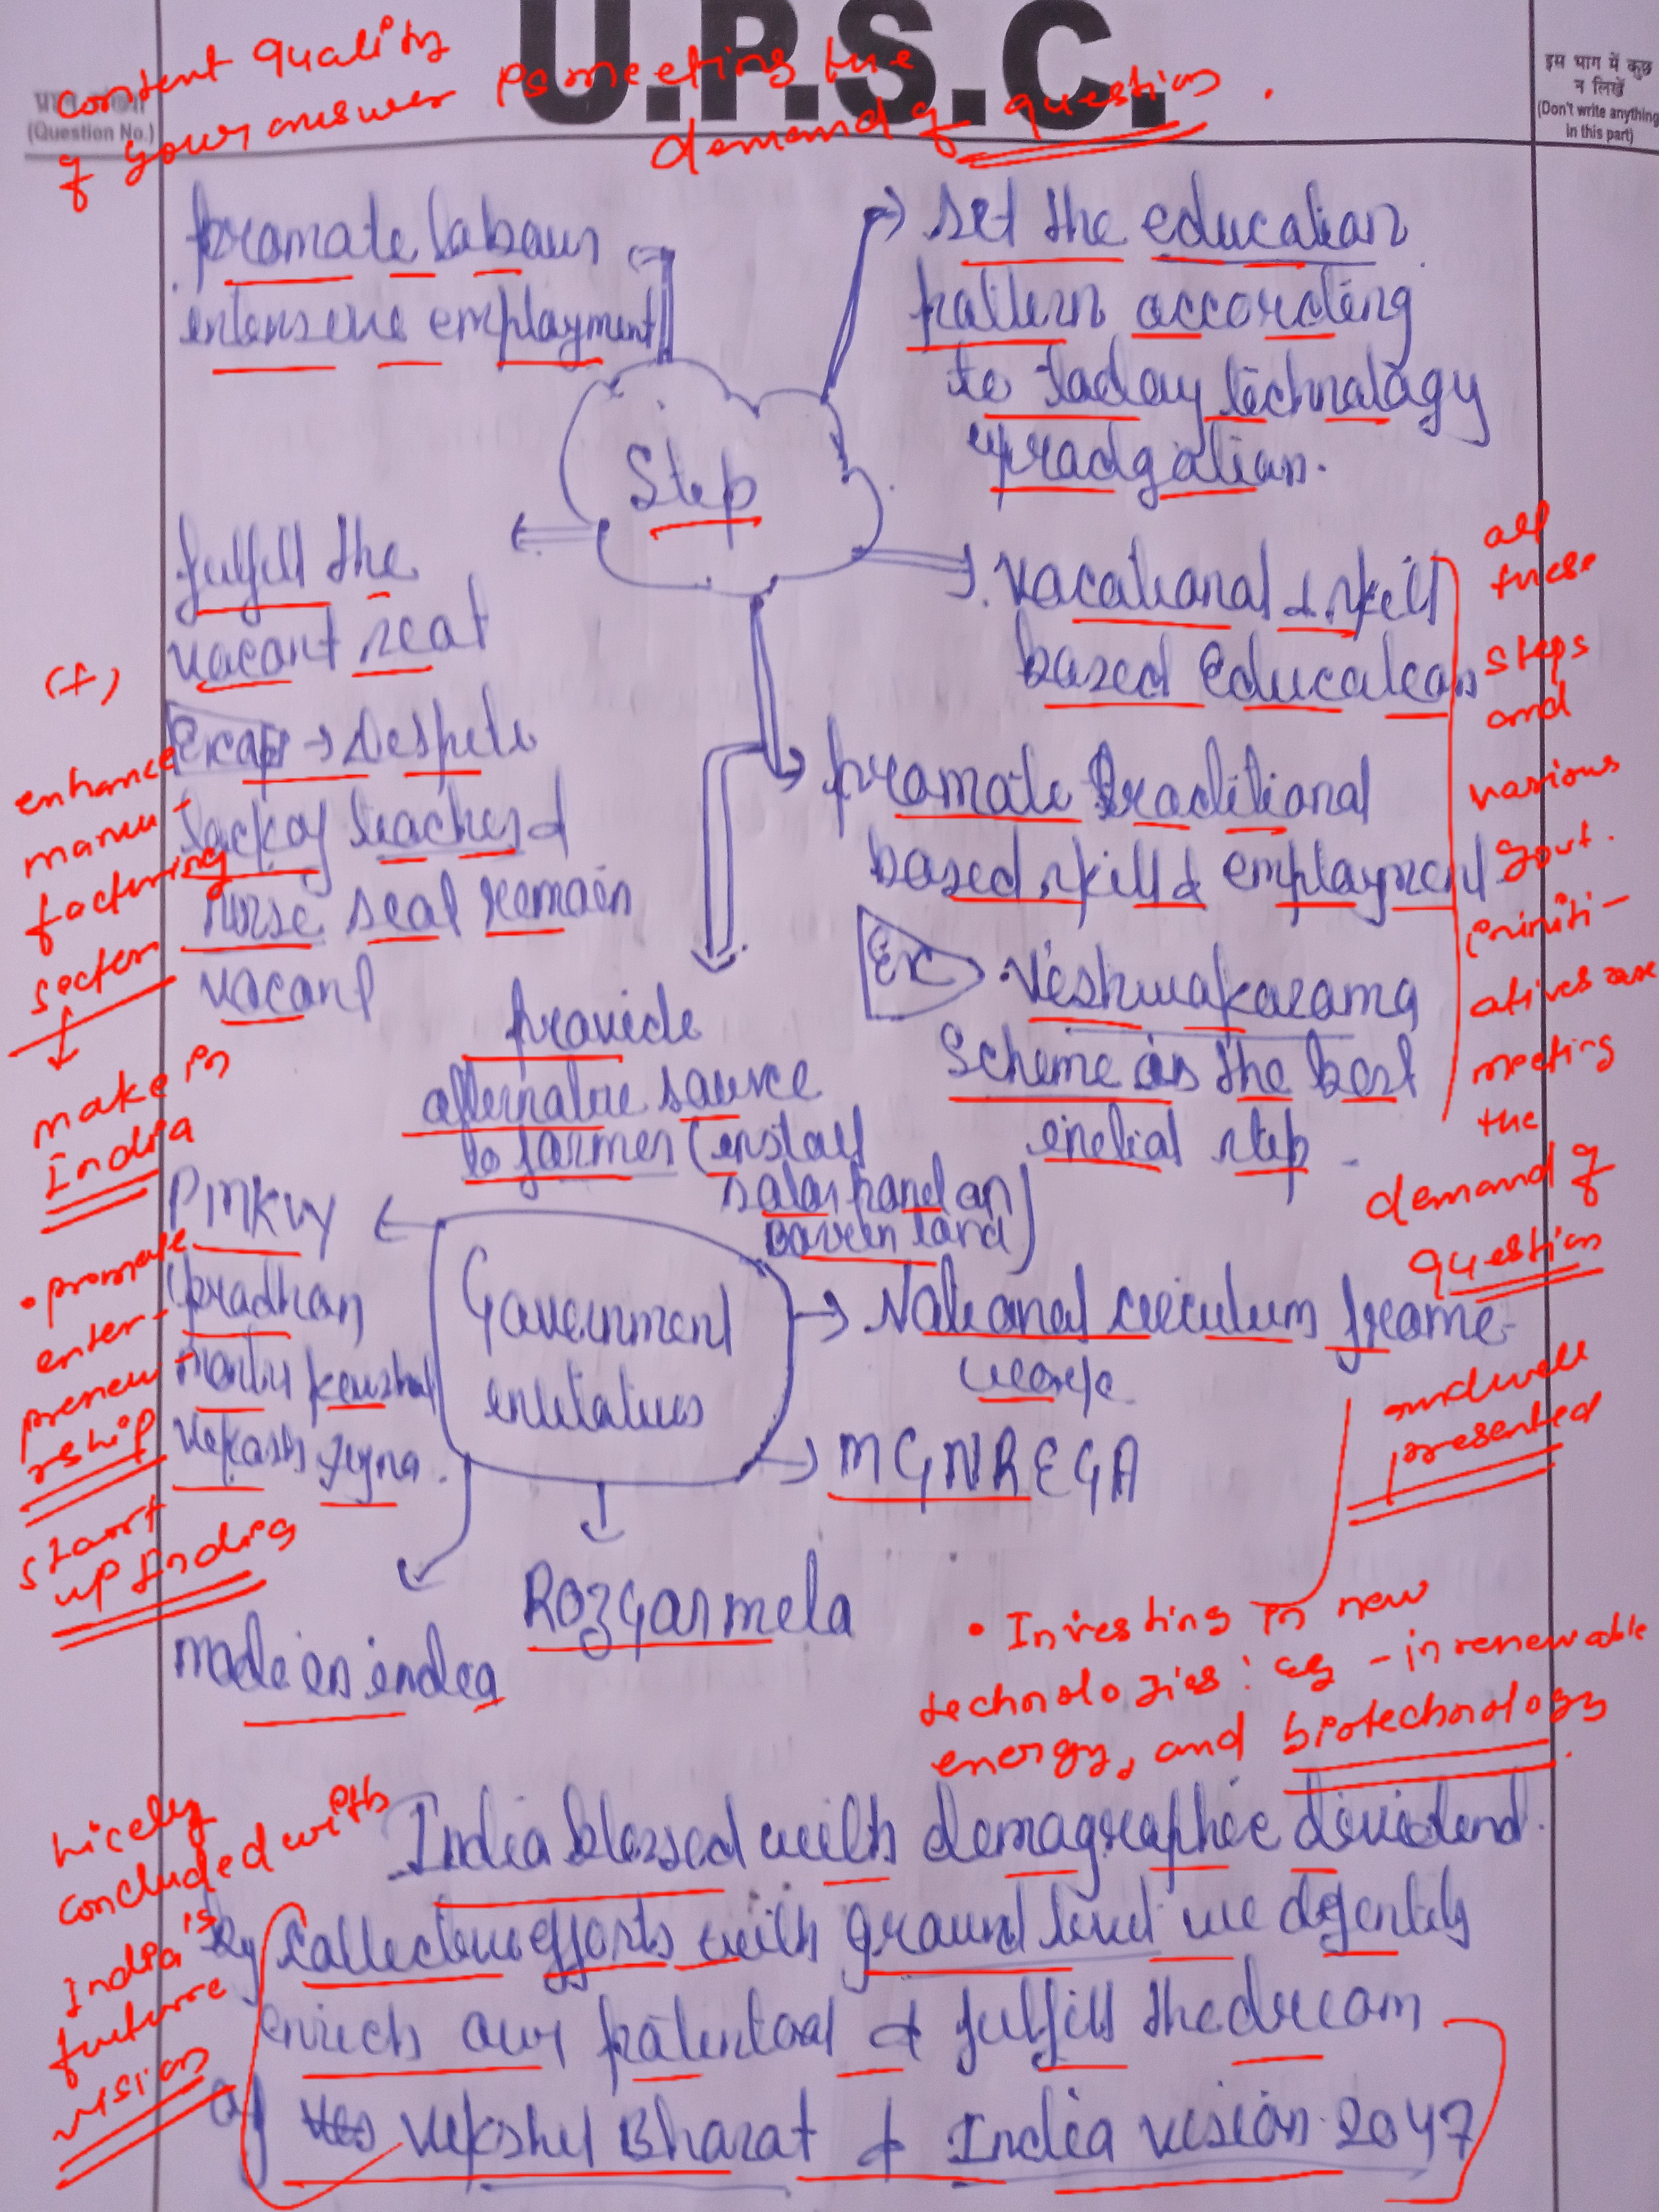 U.P.S.C.
(Question No.)
इस भाग में कुछ
न लिखें
(Don't write anything
in this part)
content quality
of your answer is meeting the
demand of question.
promote labour
intensive employment
set the education
pattern according
to today technology
upradgation.
Step
fulfill the
vacant seat
Despite
lack of teacher &
nurse seat remain
vacant
vocational & skill
based Education
promote traditional
based skill & employment
Ex
Vishwakarama
Scheme is the best
initial step
provide
alternative source
to farmer (install
solar panel on
Barren land)
all
these
steps
and
various
govt.
initi-
atives are
meeting
the
demand of
question
and well
presented
(+)
enhance
manu-
facturing
sector
make in
India
• promote
enter-
preneu-
rship
start
up India
Government
initiatives
PMKVY
(pradhan
mantri kaushal
vikash yojna.
National curiculum frame-
work
MGNREGA
Rozgar mela
made in india
• Investing in new
technologies: eg - in renewable
energy, and biotechnology
Nicely
concluded with
India's
future
vision
India blessed with demographic dividend.
By collective efforts with ground level we
enrich our potential & fulfill the dream
of Vikshit Bharat & India vision 2047